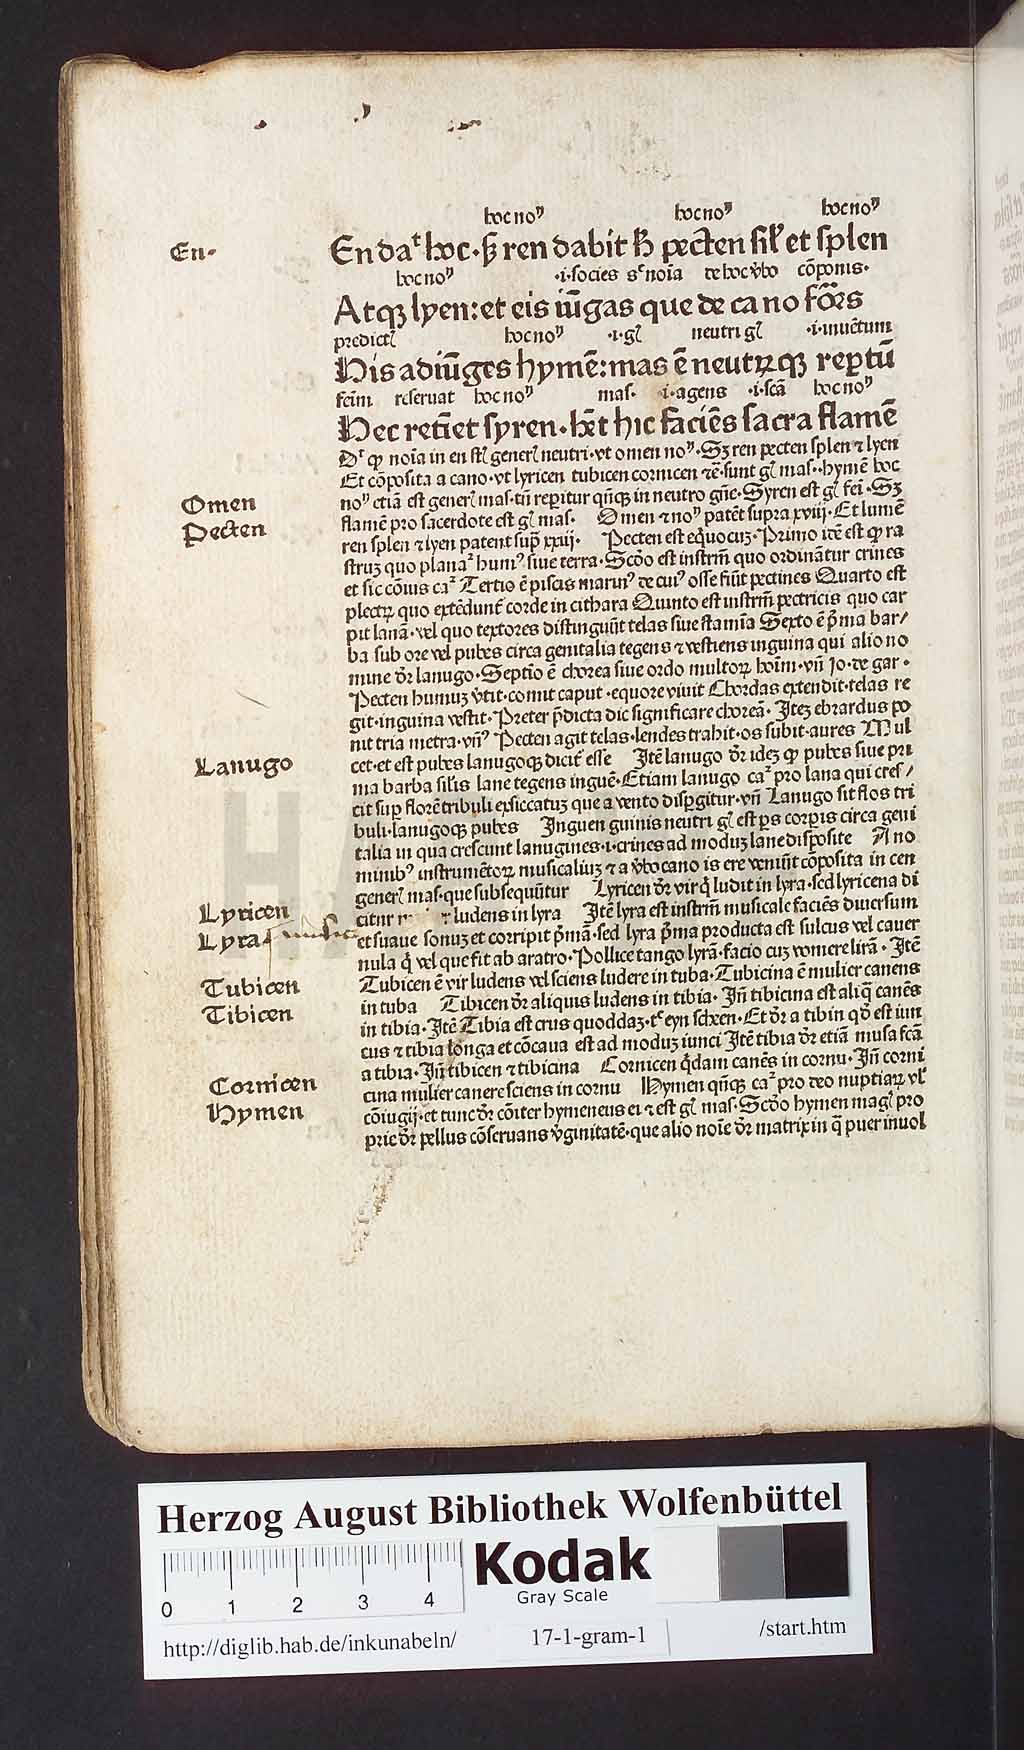 hoc noꝰ hoc noꝰ hoc noꝰ
En-
En daᵗ hoc· ren dabit pecten siƚ et splen
hoc noꝰ ·i·socies noīa de hoc v̓bo cōponis·
Atqꝫ lyen: et eis iūgas que de cano
predict hoc noꝰ ·i·gƚ neutri gƚ ·i·inuētum
His adiūges hymē: mas ē neutꝝqꝫ repertū
feīm reseruat hoc noꝰ mas· ·i·agens ·i·scā hoc noꝰ
Hec retīet syren· hic faciēs sacra flamē
ꝙ noīa in en generƚ neutri· vt omen noꝰ· Sꝫ ren pecten splen ⁊ lyen
Et cōposita a cano· vt lyricen tubicen cornicen ⁊ē· sunt gƚ mas·· hymē hoc
noꝰ etiā est generƚ mas· tn̄ reperitur qn̄qꝫ in neutro gn̄e· Syren est gƚ fei· Sꝫ
Omen
flamē pro sacerdote est gƚ mas· Omen ⁊ noꝰ patēt supra xviij· Et lumē
Pecten
ren splen ⁊ lyen patent sup̄ xxiij· Pecten est equocuꝫ· Primo idē est ꝙ ra
struꝫ quo planaᵗ humꝰ siue terra· Scd̄o est instrm̄ quo ordinātur crines
et sic cōuis caᵗ Tertio ē piscis marinꝰ de cuiꝰ osse fiūt pectines Quarto est
plectꝝ quo extēdunt corde in cithara Quinto est instrm̄ pectricis quo car
pit lanā· vel quo textores distinguūt telas siue stamīa Sexto ē p̄ma bar/
ba sub ore vel pubes circa genitalia tegens ⁊ vestiens inguina qui alio no
mine dr̄ lanugo· Septīo ē chorea siue ordo multoꝝ hoīm· vn̄ Jo· de gar·
Pecten humuꝫ v̓tit· comit caput· equore viuit Chordas extendit· telas re
git· inguina vestit· Preter p̄dicta dic significare choreā· Jteꝫ ebrardus po
nit tria metra· vn̄ꝰ Pecten agit telas· lendes trahit· os subit· aures Mul
Lanugo
cet· et est pubes lanugoqꝫ dicit̄ esse Jtē lanugo dr̄ ideꝫ ꝙ pubes siue pri
ma barba silis lane tegens inguē· Etiam lanugo caᵗ pro lana qui cres/
cit sup̄ florē tribuli exsiccatuꝫ que a vento disp̄gitur· vn̄ Lanugo sit flos tri
buli· lanugoqꝫ pubes Jnguen guinis neutri gƚ est p̄s corp̄is circa geni
talia in qua crescunt lanugines· i· crines ad moduꝫ lane disposite A no
minibꝰ instrumētoꝝ musicaliuꝫ ⁊ a v̓bo cano is ere veniūt cōposita in cen
generƚ mas· que subsequūtur Lyricen dr̄ vir q̄ ludit in lyra· sed lyricena di
Lyricen
citur ludens in lyra Jtē lyra est instrm̄ musicale faciēs diuersum
Lyra
et suaue sonuꝫ et corripit p̄mā· sed lyra p̄ma producta est sulcus vel cauer
nula q̄ vel que fit ab aratro· Pollice tango lyrā· facio cuꝫ vomere lirā· Jtē
Tubicen
Tubicen ē vir ludens vel sciens ludere in tuba· Tubicina ē mulier canens
Tibicen
in tuba Tibicen dr̄ aliquis ludens in tibia· Jn̄ tibicina est aliq̄ canēs
in tibia· Jtē Tibia est crus quoddaꝫ· eyn scheen· Et dr̄ a tibin qd̄ est iun
cus ⁊ tibia longa et cōcaua est ad moduꝫ iunci Jtē tibia dr̄ etiā musa fcā
a tibia· Jn̄ tibicen ⁊ tibicina Cornicen q̄dam canēs in cornu· Jn̄ corni
Cornicen
cina mulier canere sciens in cornu Hymen qn̄qꝫ caᵗ pro deo nuptiaꝝ vƚ
Hymen
cōiugij· et tunc dr̄ cōiter hymeneus ei ⁊ est gƚ mas· Scd̄o hymen magƚ pro
prie dr̄ pellus cōseruans v̓ginitatē· que alio noīe dr̄ matrix in q̄ puer inuol
Herzog August Bibliothek Wolfenbüttel
0 1 2 3 4
Kodak
Gray Scale
http://diglib.hab.de/inkunabeln/ 17-1-gram-1 /start.htm